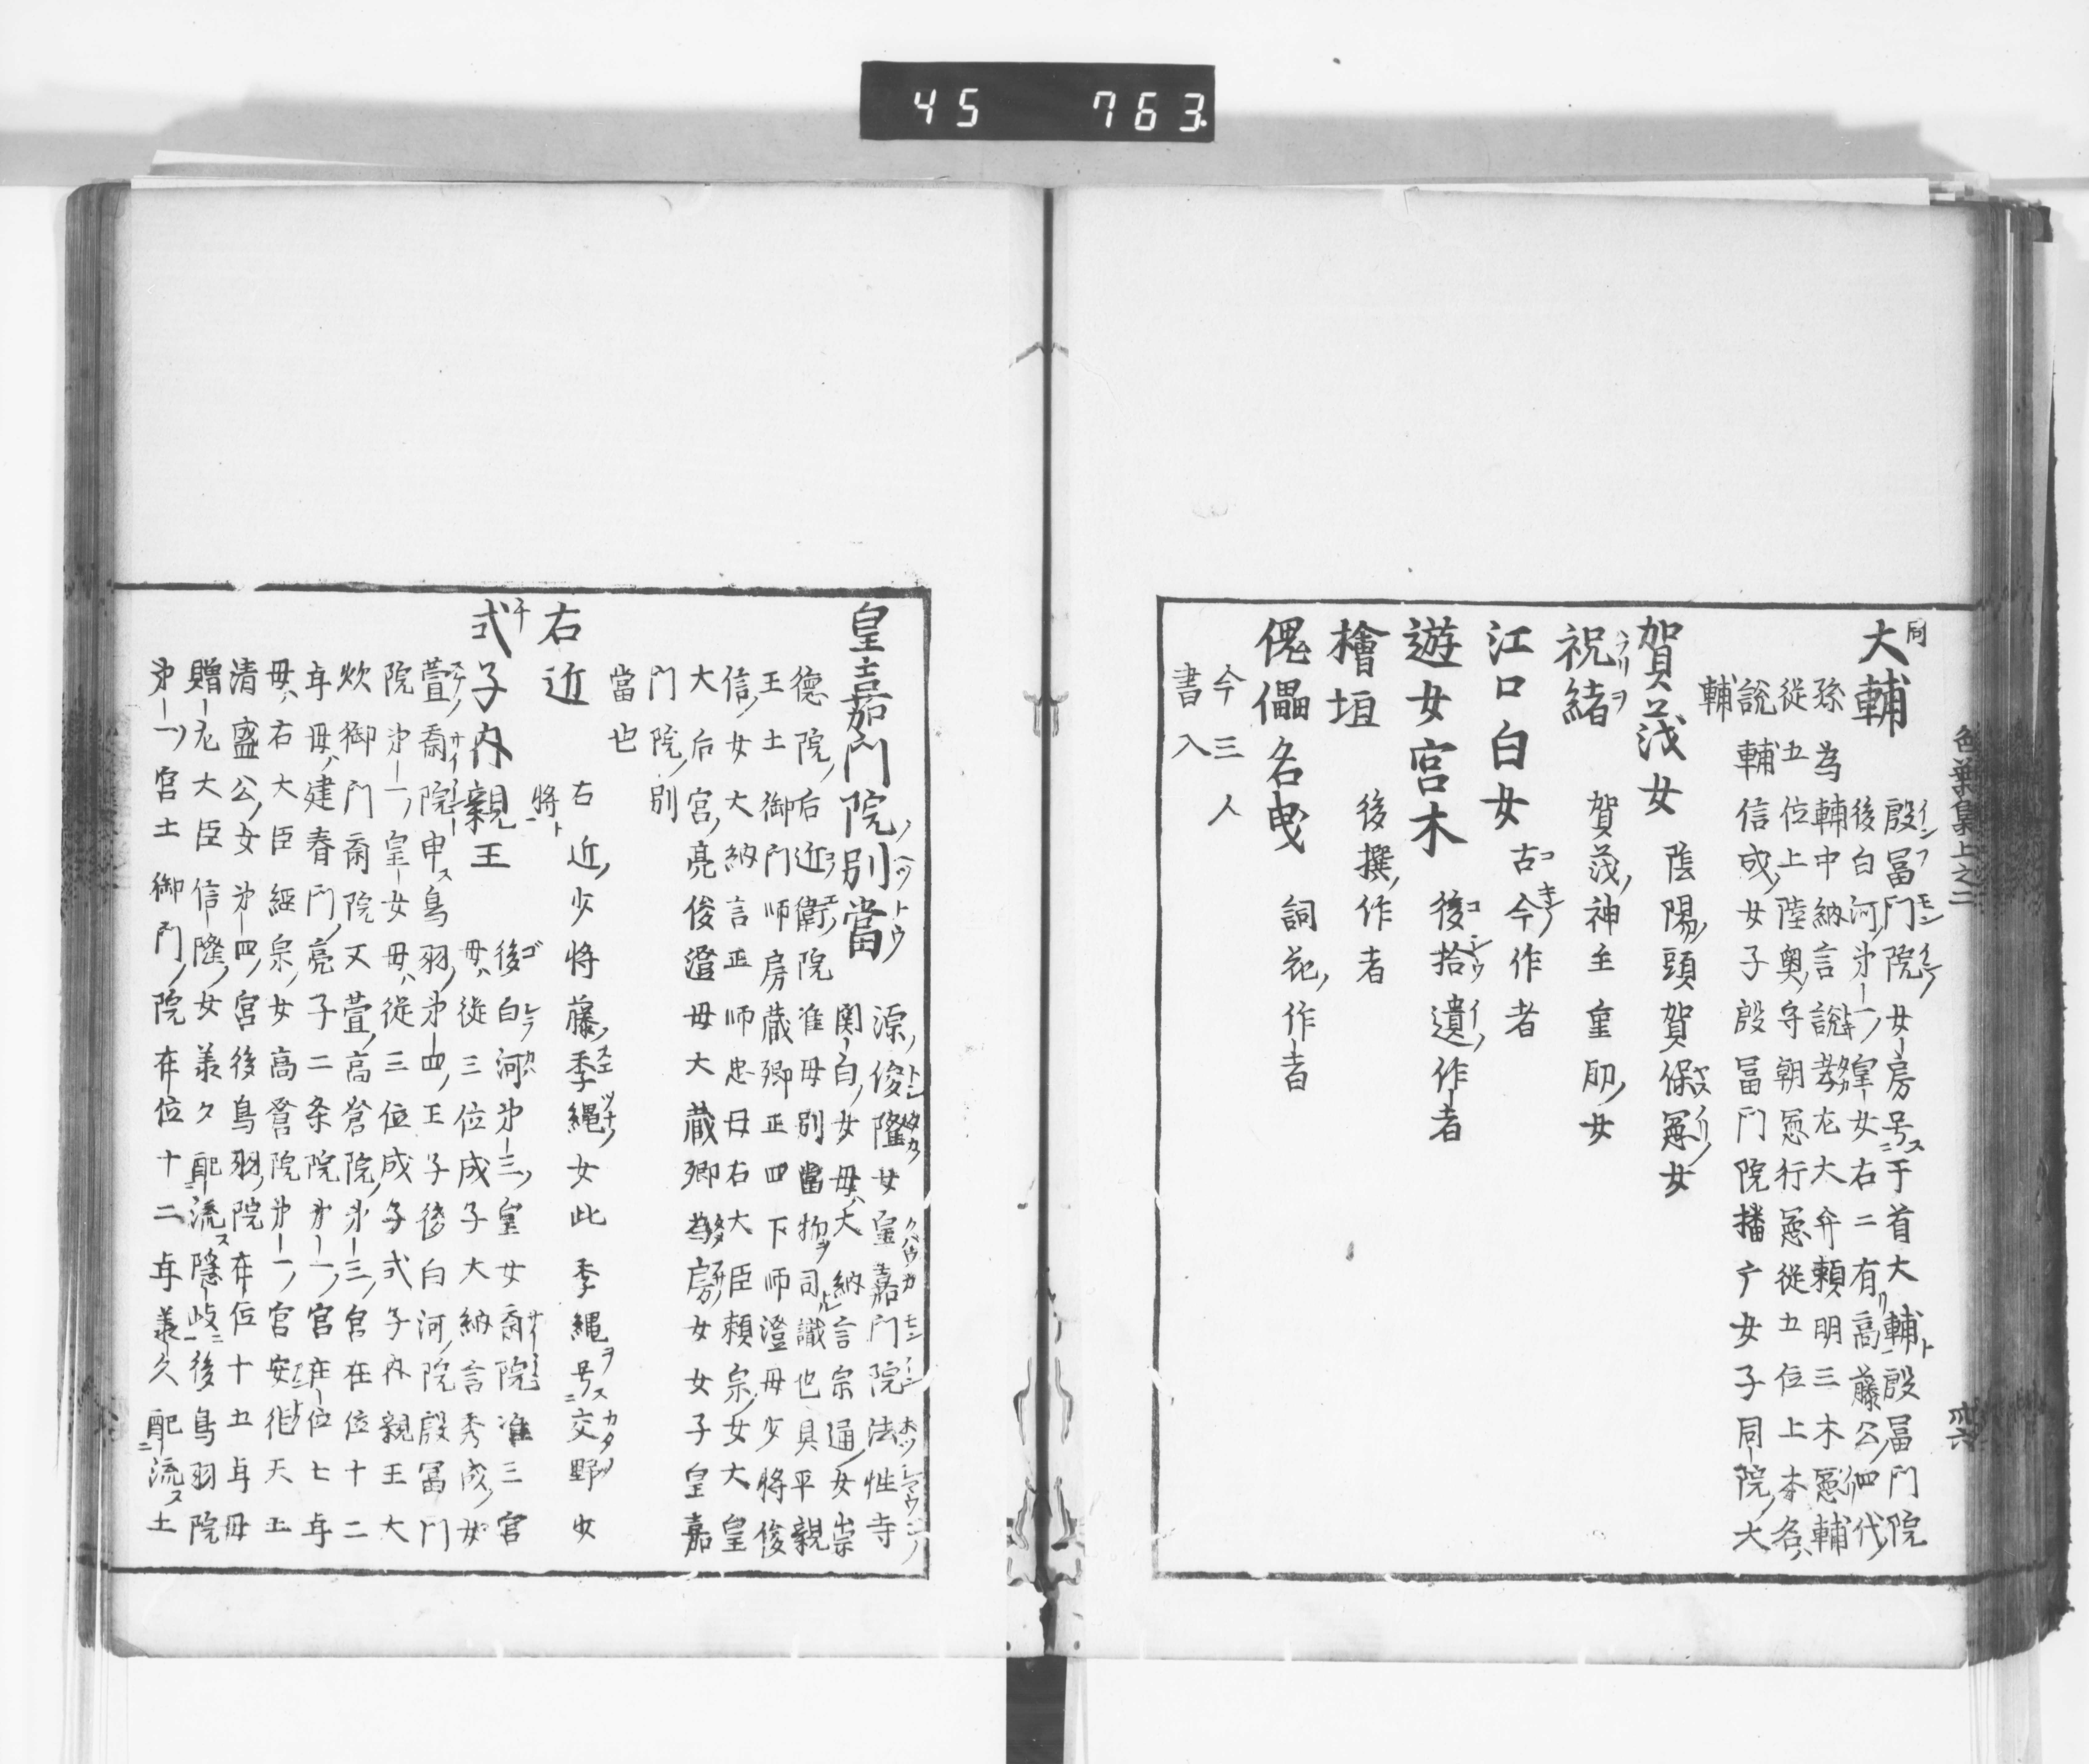 45 763
同
大輔
殷冨門院女房号ス于首大輔ト殷冨門院
後白河第一皇女右二有リ高藤公四代
孫為輔中納言説孝左大弁頼明三木憲輔
従五位上陸奥守朝憲行憲従五位上本名
説輔信成女子殷冨門院播广女子同院大
輔
賀茂女
陰陽頭賀保憲女
祝緒
賀茂神主重助女
江口白女
古今作者
遊女宮木
後拾遺作者
檜垣
後撰作者
傀儡名曳
詞花作者
今三人
書入
皇嘉門院別當
源俊隆女皇嘉門院法性寺
関白女母大納言宗通女崇
德院后近衛院准母別當物ヲ司ル識也具平親
王土御門師房蔵卿正四下師澄母少将俊
信女大納言正師忠母右大臣頼宗女大皇
大后宮亮俊澄母大蔵卿為房女女子皇嘉
門院別
當也
右近
右近少将藤季縄女此季縄号ス交野少
将ト
式子内親王
後白河第三皇女斎院准三宮
母従三位成子大納言秀成女
萱斎院申ス鳥羽第四王子後白河院殷冨門
院第一皇女母従三位成子式子内親王大
炊御門斎院又萱高倉院第三宮在位十二
年母建春門亮子二条院第一宮在位七年
母右大臣経宗女高倉院第一宮安徳天王
清盛公女第四宮後鳥羽院在位十五年母
贈左大臣信隆女義久配流ス隠岐ニ後鳥羽院
第一ノ宮土御門院在位十二年義久配流ス土